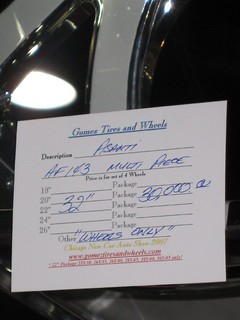 Gomez Tires and Wheels
Description ASANTI
AF 143 MULTI PIECE
Price is for set of 4 Wheels
18" Package
20" 32" Package 30,000.00
22" 32 Package
24" Package
26" Package
Other "WHEELS ONLY"
Chicago New Car Auto Show 2007
www.gomeztiresandwheels.com